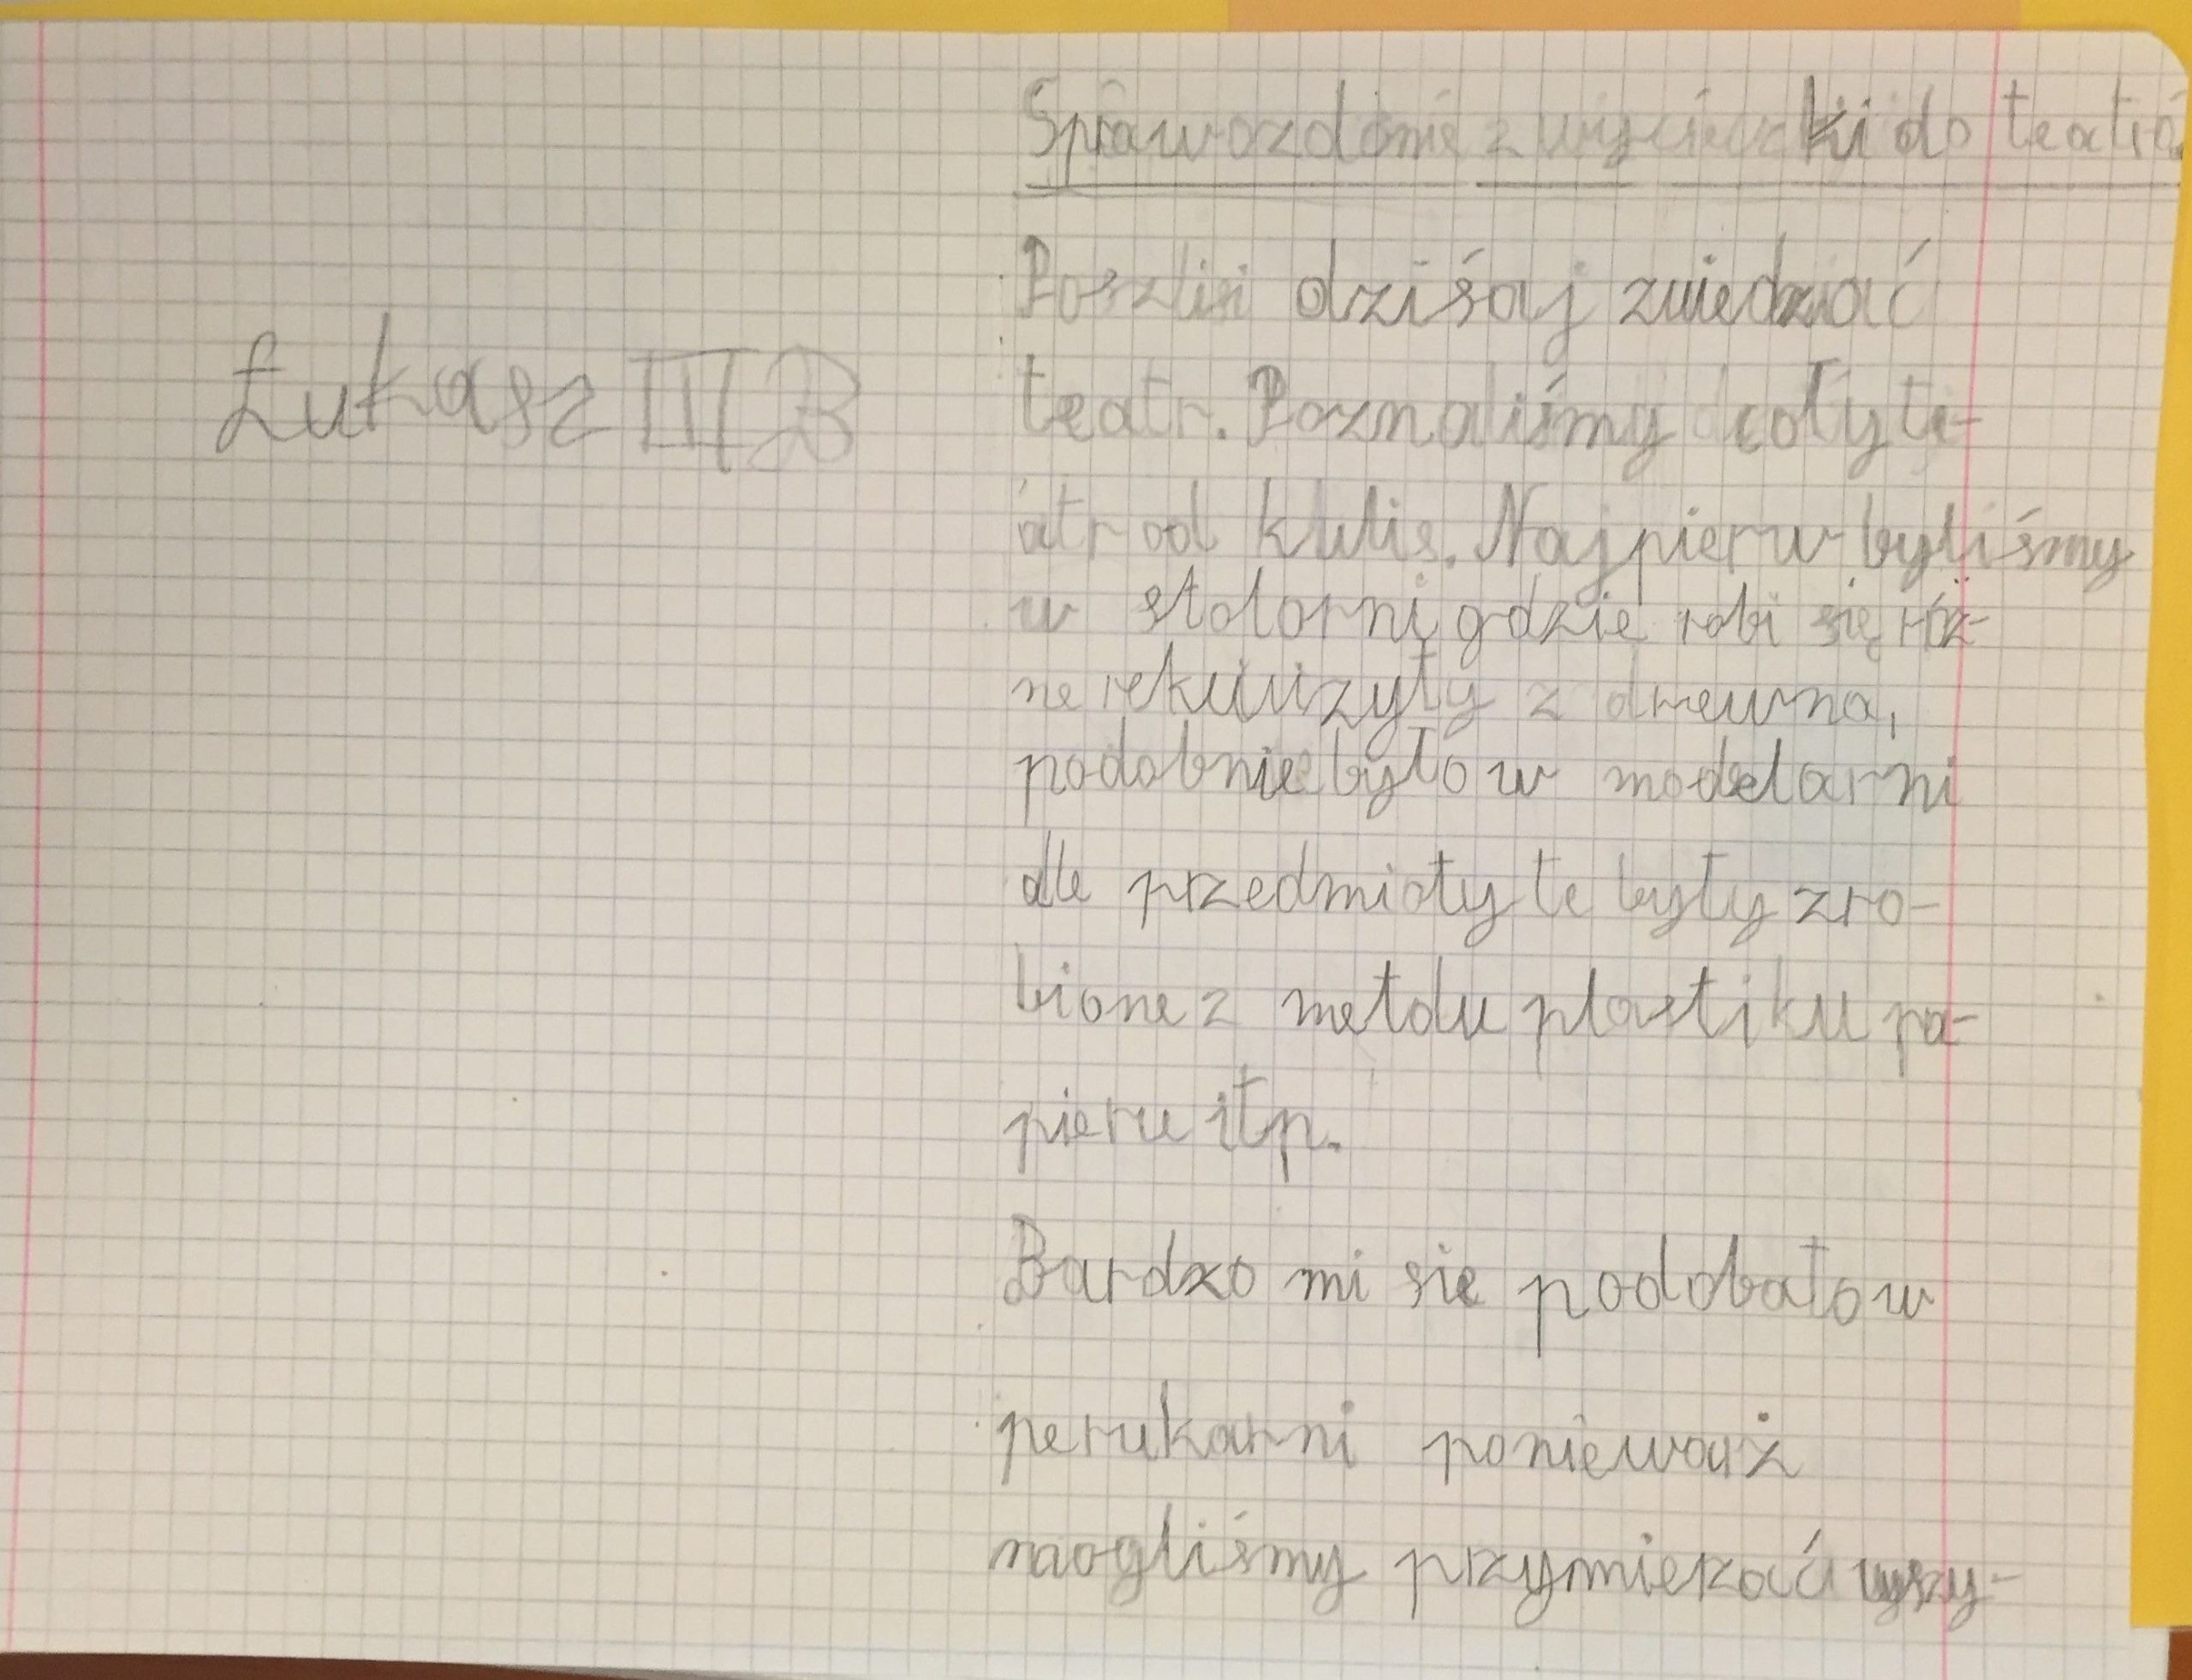 Sprawozdanie z wycieczki do teatru
Łukasz III B
Poszliśmy dzisaj zwiedzać
teatr. Poznaliśmy cały te-
atr od kulis. Najpierw byliśmy
w stolarni gdzie robi się róż-
ne rekwizyty z drewna,
podobnie było w modelarni
ale przedmioty te były zro-
bione z metalu plastiku pa-
pieru itp.
Bardzo mi się podobało w
perukarni ponieważ
mogliśmy przymierzać